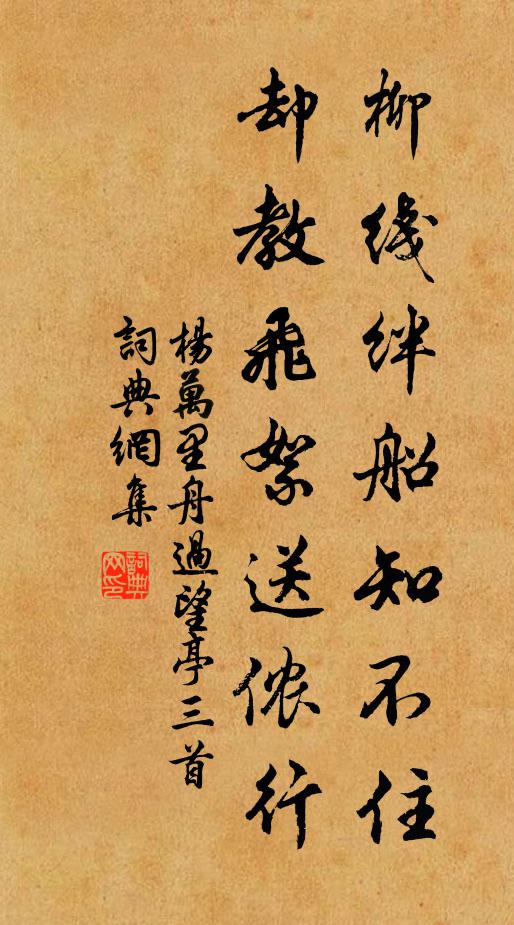 柳线绊船知不住
却教飛絮送侬行
楊萬里舟過望亭三首
詞典網集
詞典网印